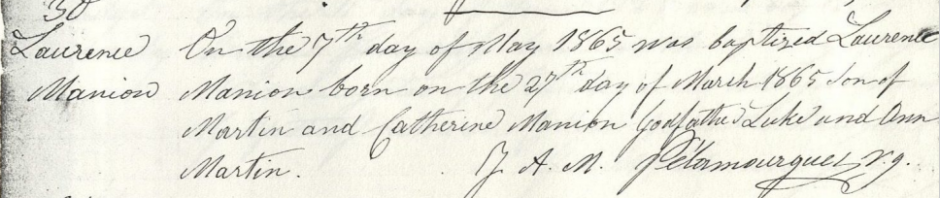 30
Laurence On the 7th day of May 1865 was baptized Laurence
Manion Manion born on the 27th day of March 1865 Son of
Martin and Catherine Manion Godfather Luke and Ann
Martin. J. A. M. Pelamourgues V.g.